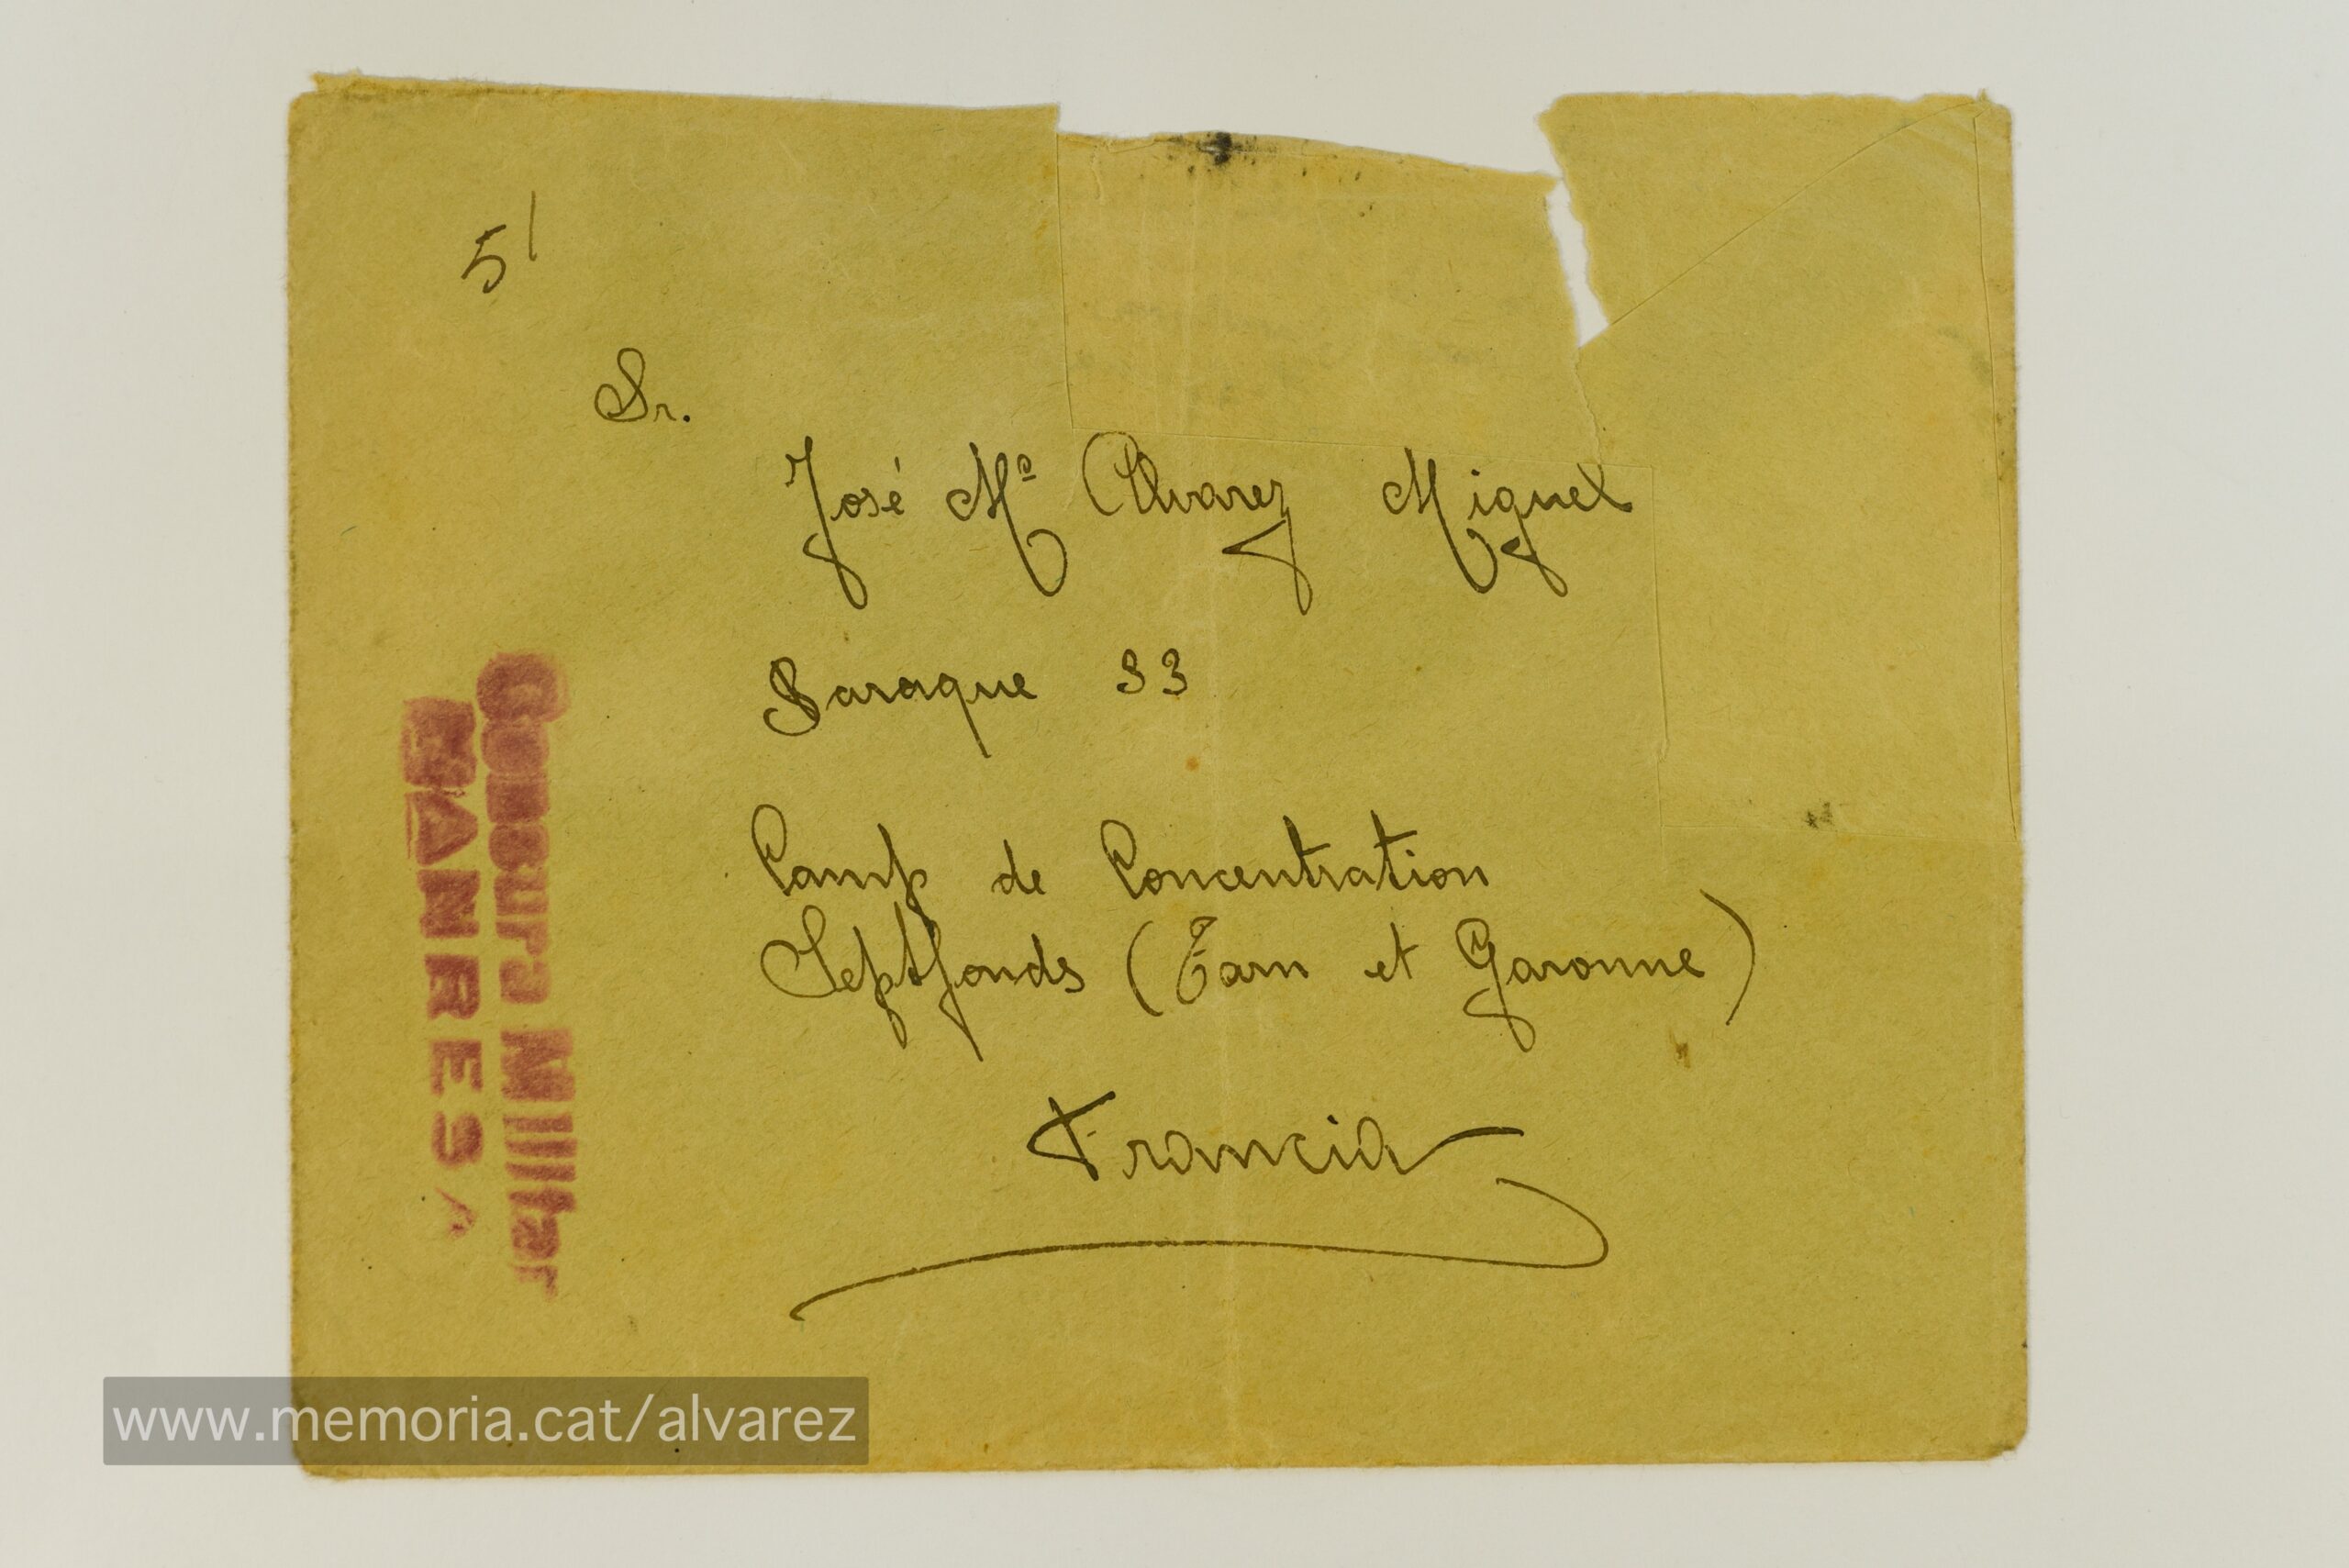 5/
Sr.
José Mª Alvarez Miguel
Baraque 33
Camp de Concentration
Septfonds (Tarn et Garonne)
Francia
Censura Militar
MANRESA
www.memoria.cat/alvarez